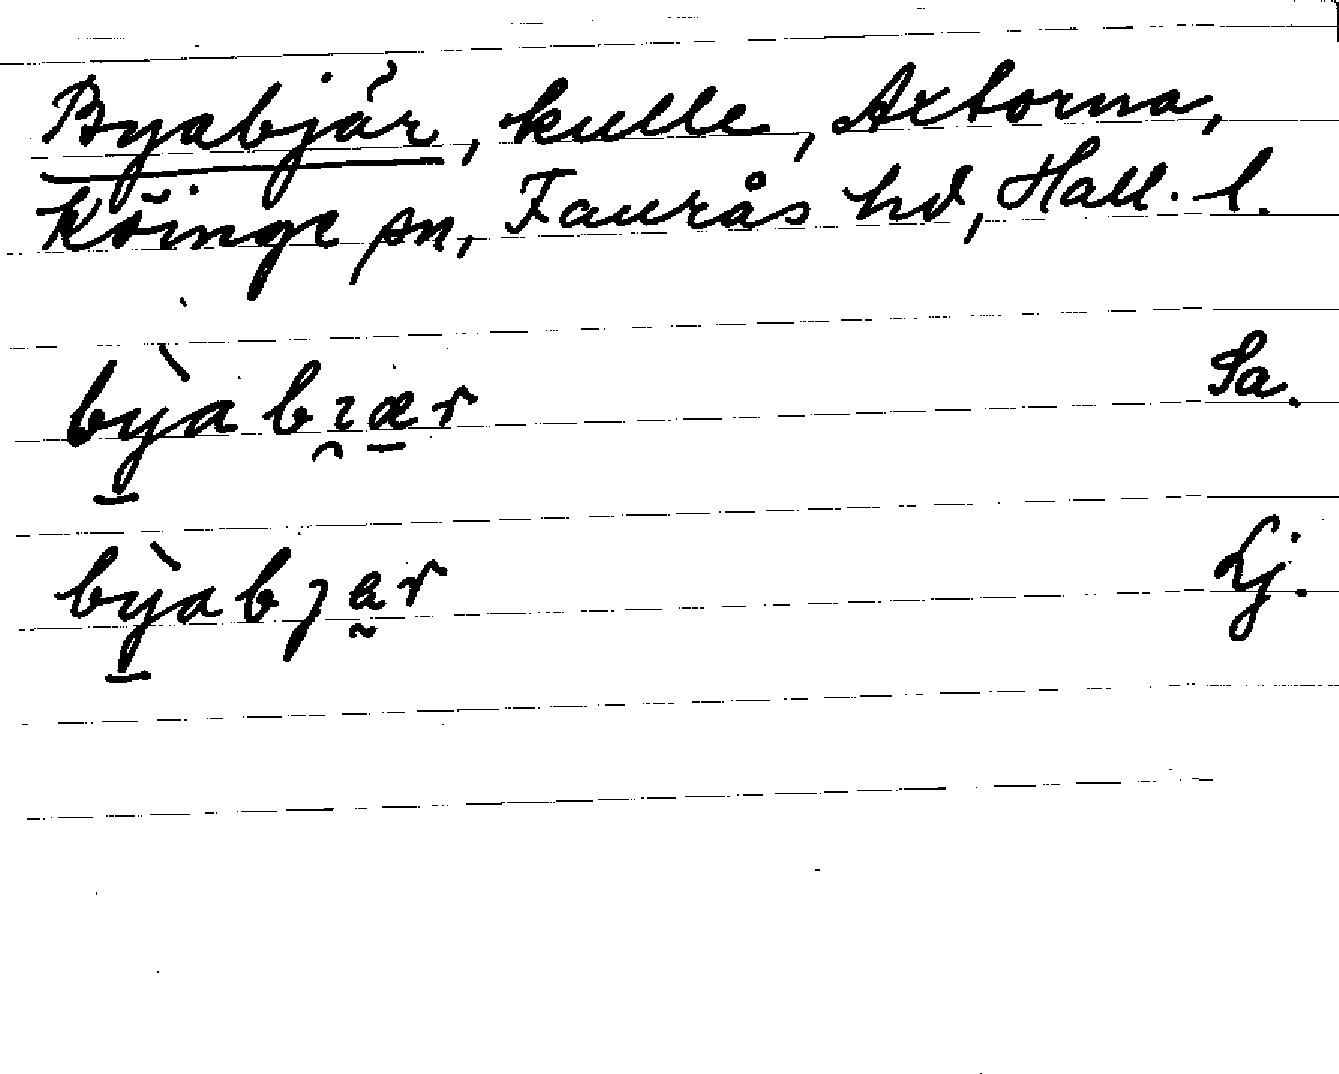 Byabjär, kulle, Axtorna,
Köinge sn, Faurås hd, Hall. l.
bỳ̠a bɿ̯æ̠r Sa.
bỳ̠abȷa̰r Lj.